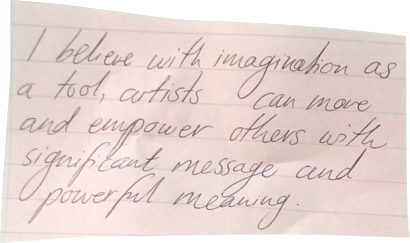 I believe with imagination as
a tool, artists can move
and empower others with
significant message and
powerful meaning.